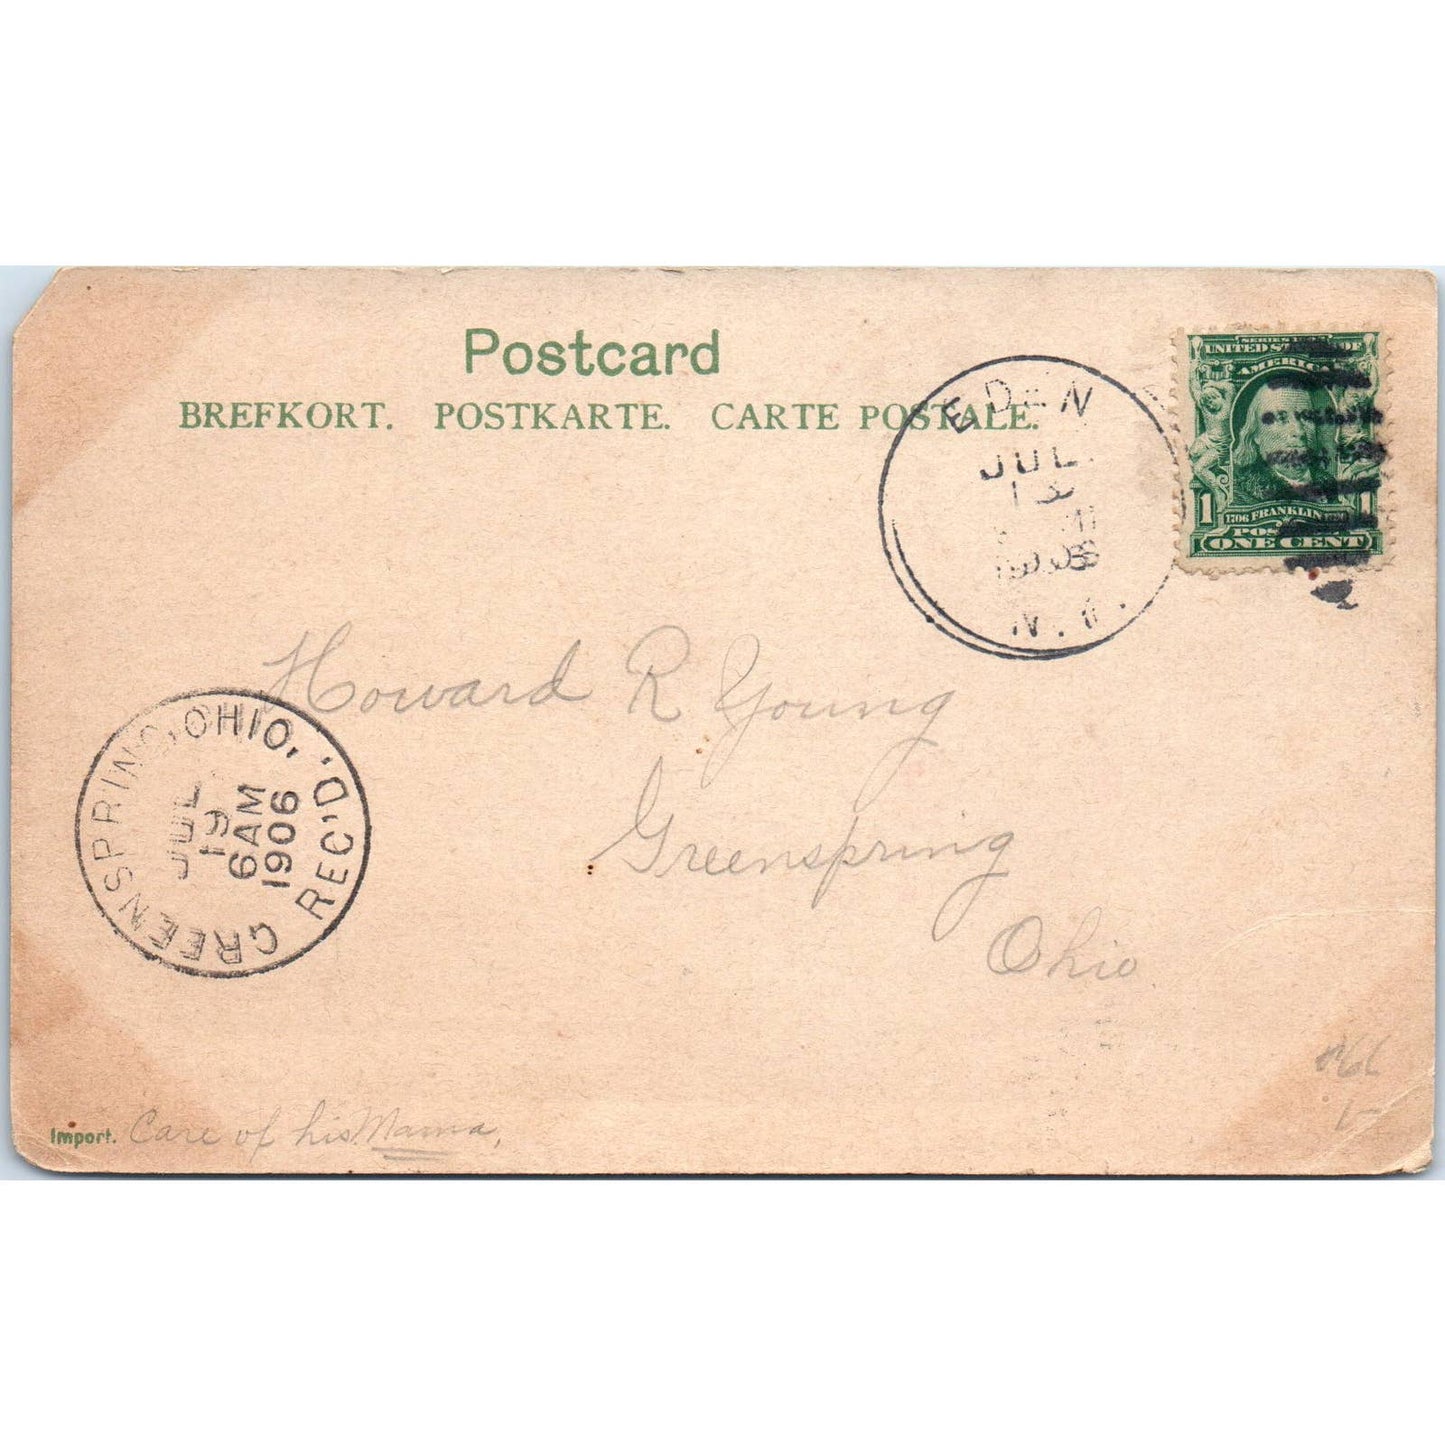 Postcard
BREFKORT. POSTKARTE. CARTE POSTALE.
EDEN
JUL
1906
N.Y.
SERIES
UNITED STATES OF
AMERICA
1706 FRANKLIN 1790
1 POSTAGE 1
ONE CENT
Howard R Young
Greenspring
Ohio
GREENSPRING, OHIO, REC'D.
JUL
19
6AM
1906
Import. Care of his Mama,